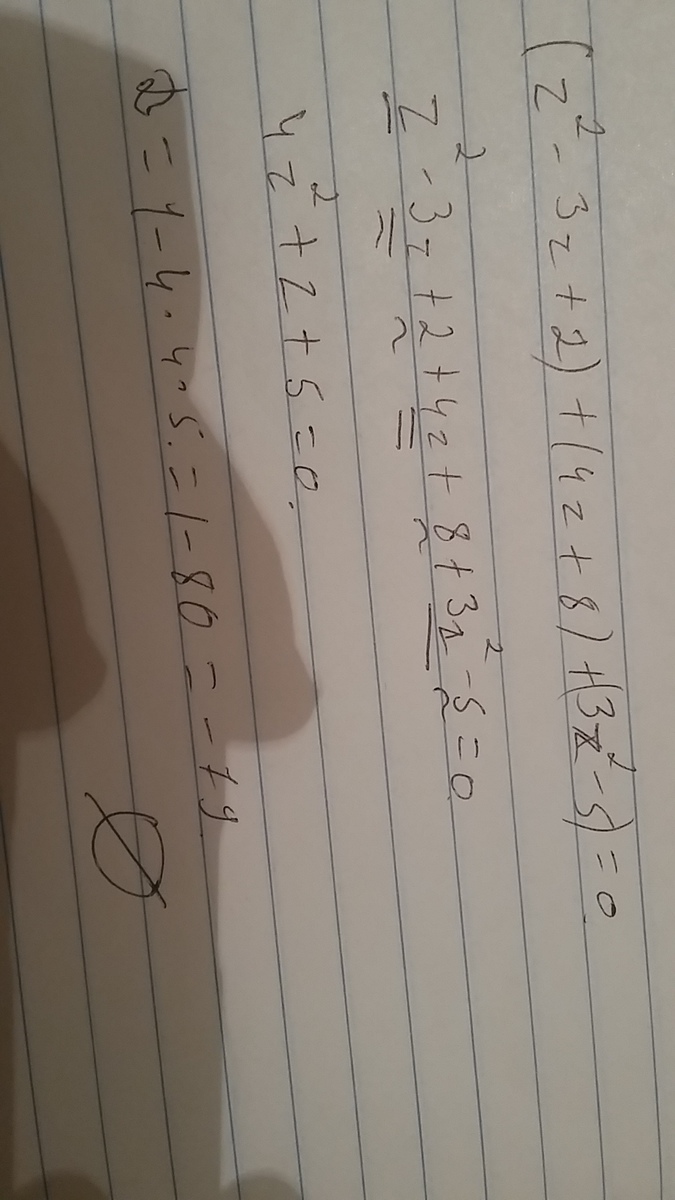 (z² - 3z + 2) + (4z + 8) + (3z² - 5) = 0
z² - 3z + 2 + 4z + 8 + 3z² - 5 = 0
4z² + z + 5 = 0.
D = 1 - 4 · 4 · 5 = 1 - 80 = -79
∅